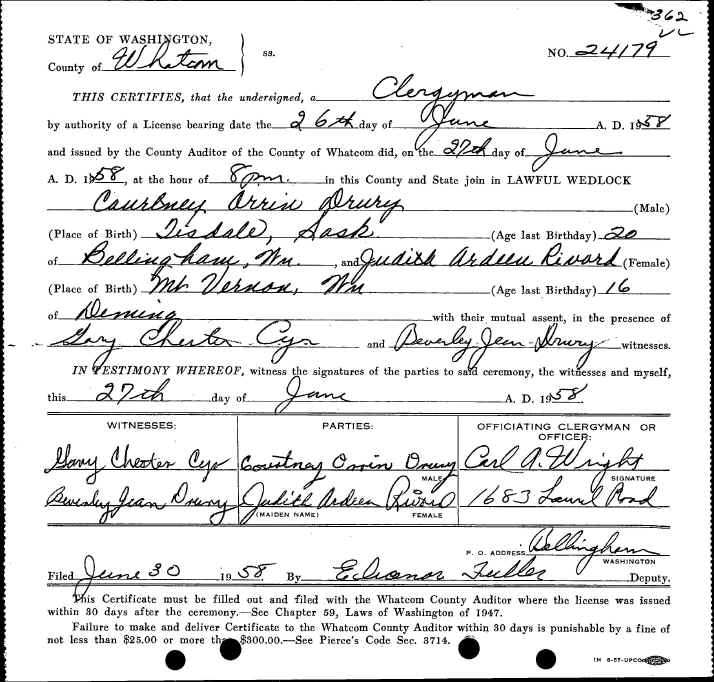 362
VL
STATE OF WASHINGTON,
County of Whatcom ss.
NO. 24179
THIS CERTIFIES, that the undersigned, a Clergyman
by authority of a License bearing date the 26th day of June A. D. 1958
and issued by the County Auditor of the County of Whatcom did, on the 27th day of June
A. D. 1958, at the hour of 8 pm. in this County and State join in LAWFUL WEDLOCK
Courtney Orrin Drury (Male)
(Place of Birth) Tisdale, Sask. (Age last Birthday) 20
of Bellingham, Wn. , and Judith Ardeen Rivord (Female)
(Place of Birth) Mt. Vernon, Wn (Age last Birthday) 16
of Deming with their mutual assent, in the presence of
Gary Chester Cyr and Beverley Jean Drury witnesses.
IN TESTIMONY WHEREOF, witness the signatures of the parties to said ceremony, the witnesses and myself,
this 27th day of June A. D. 1958
WITNESSES: PARTIES: OFFICIATING CLERGYMAN OR OFFICER:
Gary Chester Cyr Courtney Orrin Drury Carl A. Wright
MALE SIGNATURE
Beverley Jean Drury Judith Ardeen Rivord 1683 Laurel Road
(MAIDEN NAME) FEMALE
P. O. ADDRESS Bellingham
WASHINGTON
Filed June 30 1958 By Eleanor Fuller Deputy.
This Certificate must be filled out and filed with the Whatcom County Auditor where the license was issued
within 30 days after the ceremony.—See Chapter 59, Laws of Washington of 1947.
Failure to make and deliver Certificate to the Whatcom County Auditor within 30 days is punishable by a fine of
not less than $25.00 or more than $300.00.—See Pierce's Code Sec. 3714.
1M 6-57-UPCO